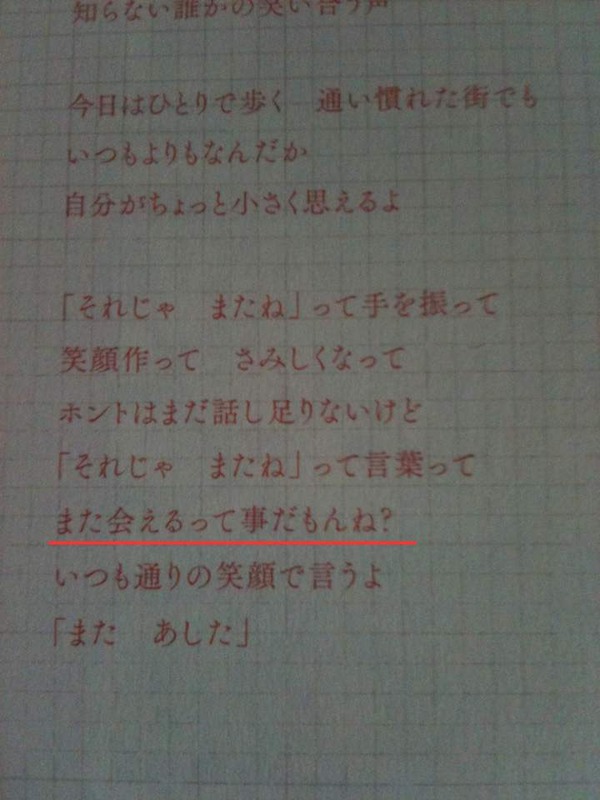 知らない誰かの笑い合う声
今日はひとりで歩く　通い慣れた街でも
いつもよりもなんだか
自分がちょっと小さく思えるよ
「それじゃ　またね」って手を振って
笑顔作って　さみしくなって
ホントはまだ話し足りないけど
「それじゃ　またね」って言葉って
また会えるって事だもんね?
いつも通りの笑顔で言うよ
「また　あした」